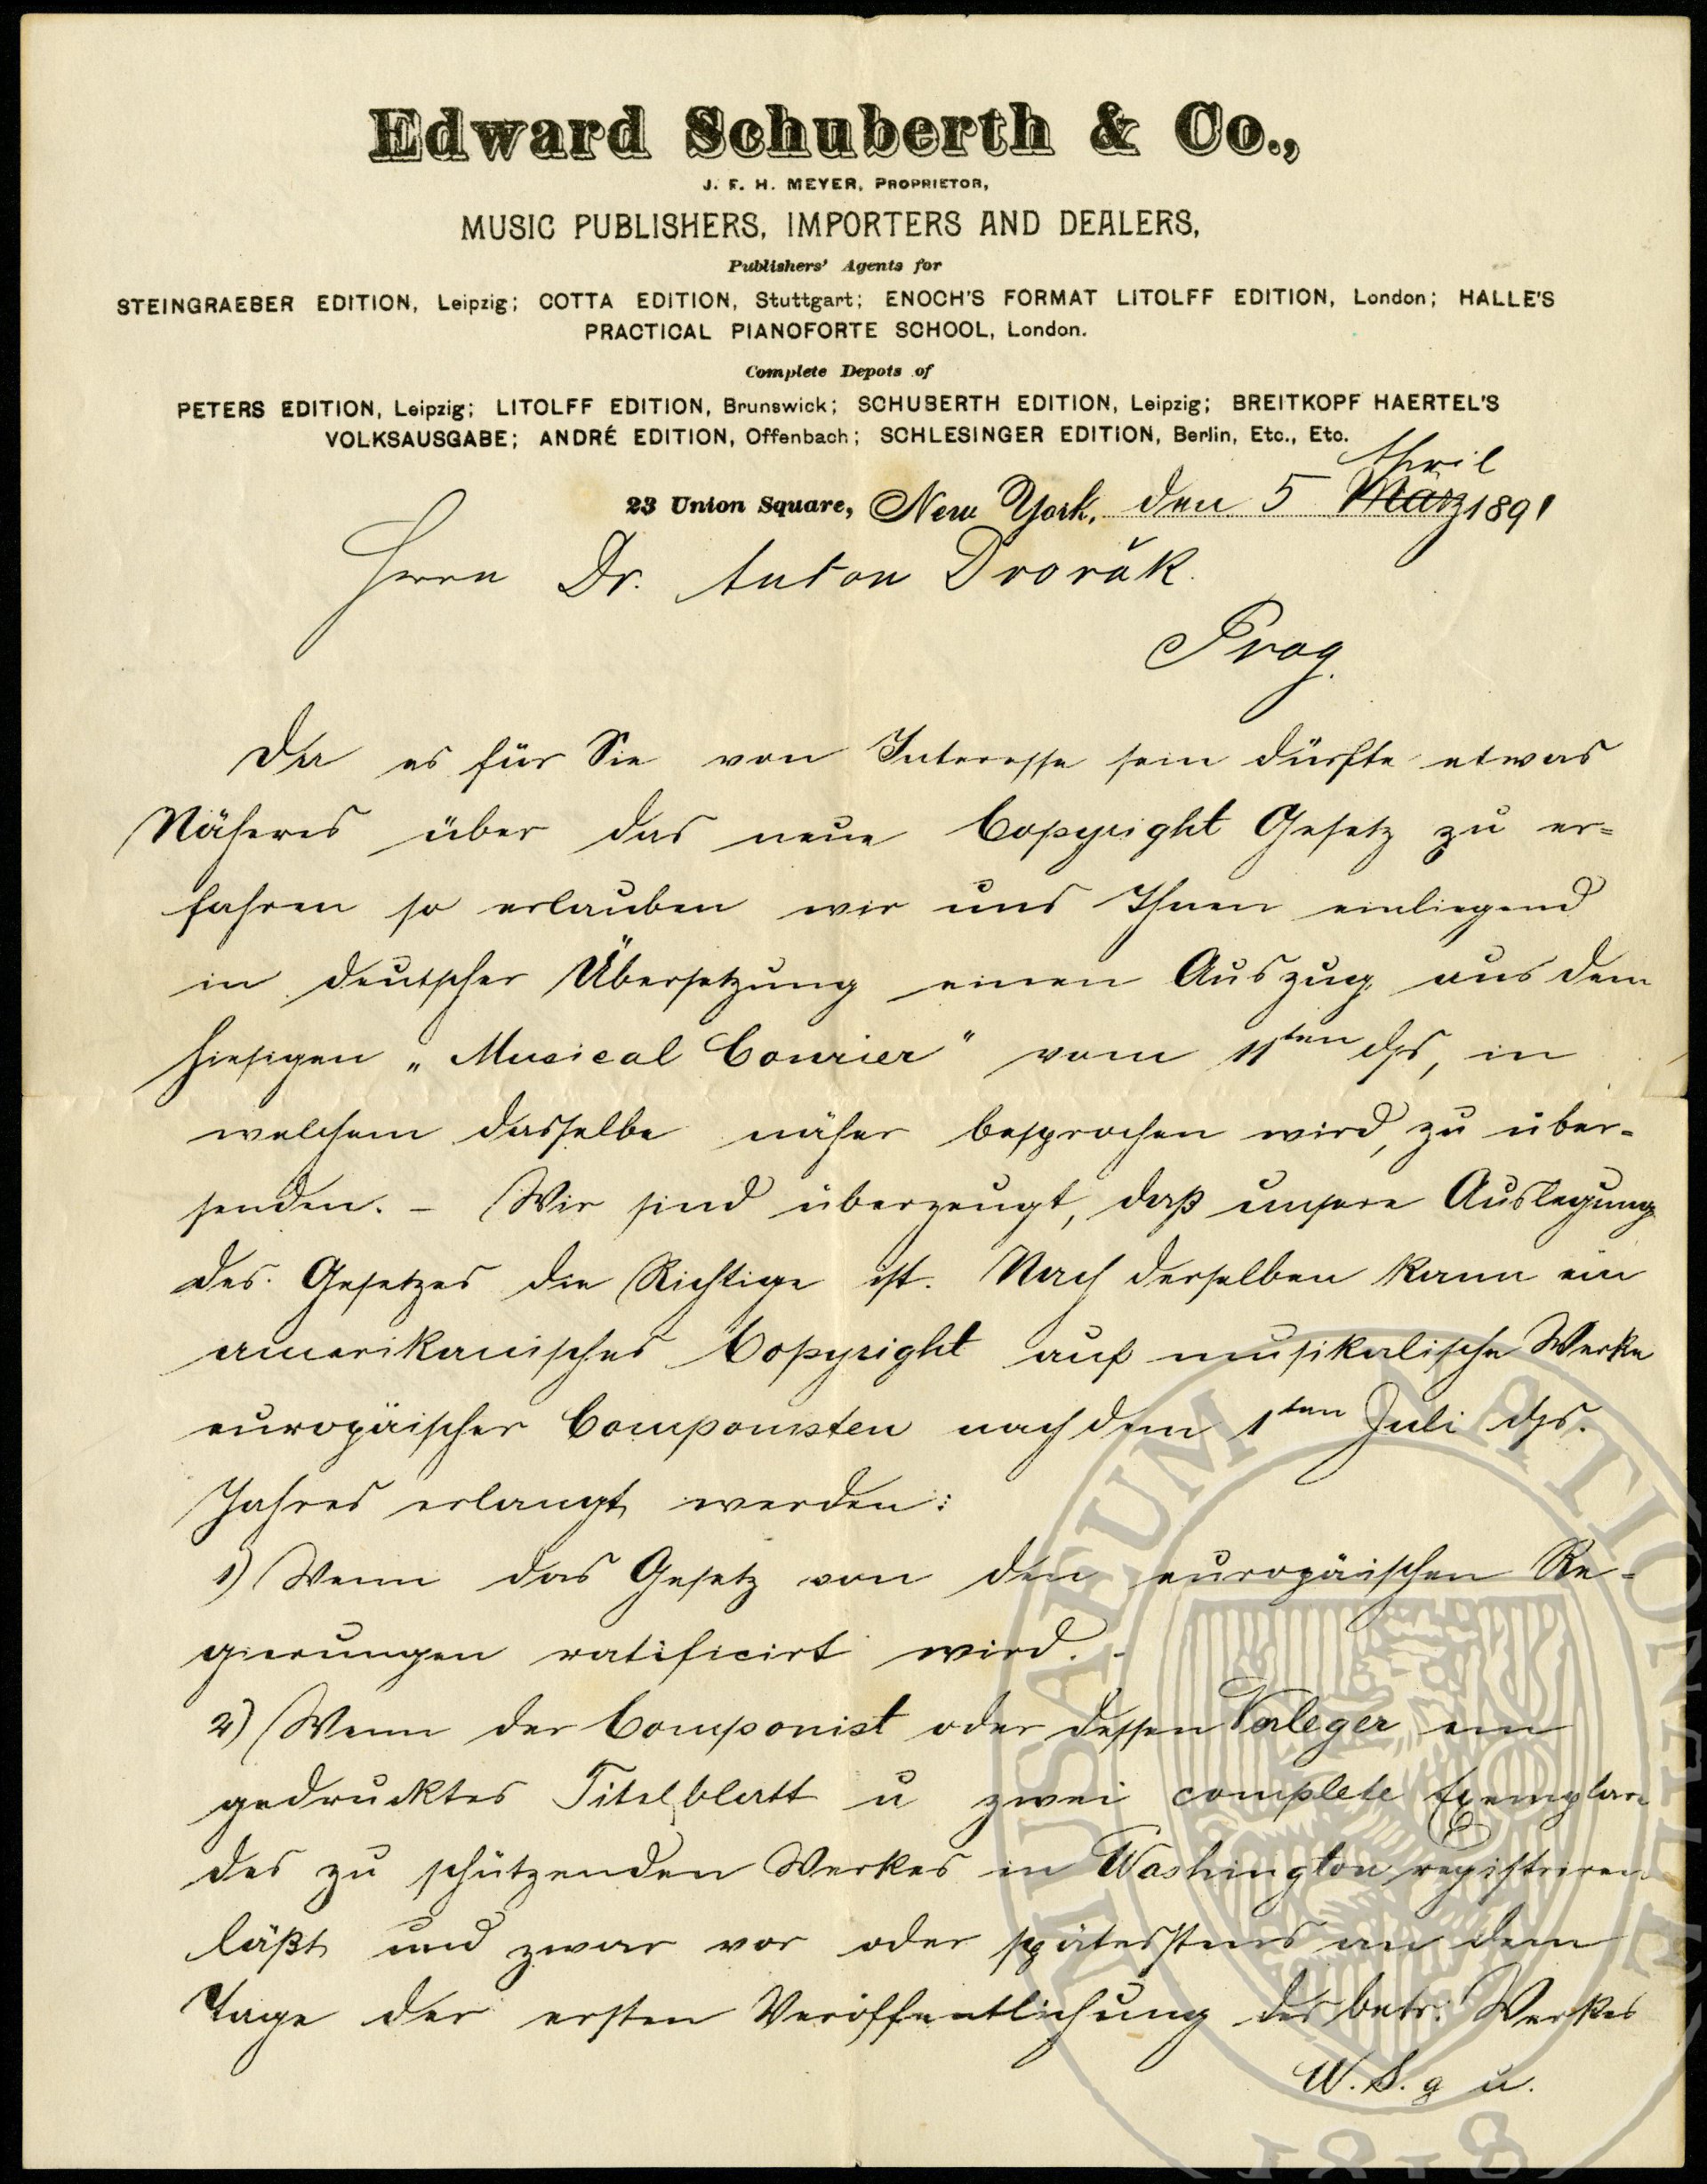 Edward Schuberth & Co.,
J. F. H. MEYER, PROPRIETOR,
MUSIC PUBLISHERS, IMPORTERS AND DEALERS,
Publishers' Agents for
STEINGRAEBER EDITION, Leipzig; COTTA EDITION, Stuttgart; ENOCH'S FORMAT LITOLFF EDITION, London; HALLE'S
PRACTICAL PIANOFORTE SCHOOL, London.
Complete Depots of
PETERS EDITION, Leipzig; LITOLFF EDITION, Brunswick; SCHUBERTH EDITION, Leipzig; BREITKOPF HAERTEL'S
VOLKSAUSGABE; ANDRÉ EDITION, Offenbach; SCHLESINGER EDITION, Berlin, Etc., Etc.
April
23 Union Square, New York, den 5 März 1891
Herrn Dr. Anton Dvořák.
Prag.
Da es für Sie von Interesse sein dürfte etwas
Näheres über das neue Copyright Gesetz zu er=
fahren so erlauben wir uns Ihnen einliegend
in deutscher Übersetzung einen Auszug aus dem
hiesigen „Musical Courier" vom 11ten djs, in
welchem dasselbe näher besprochen wird, zu über=
senden. – Wir sind überzeugt, daß unsere Auslegung
des Gesetzes die Richtige ist. Nach derselben kann ein
amerikanisches Copyright auf musikalische Werke
europäischer Componisten nach dem 1ten Juli djs.
Jahres erlangt werden:
1) Wenn das Gesetz von den europäischen Re=
gierungen ratificirt wird. -
2) Wenn der Componist oder dessen Verleger ein
gedrucktes Titelblatt u zwei complete Exemplare
des zu schützenden Werkes in Washington registriren
läßt und zwar vor oder spätestens an dem
Tage der ersten Veröffentlichung des betr. Werkes
W. S. g u.
MUSAEUM NATIONALE
1818